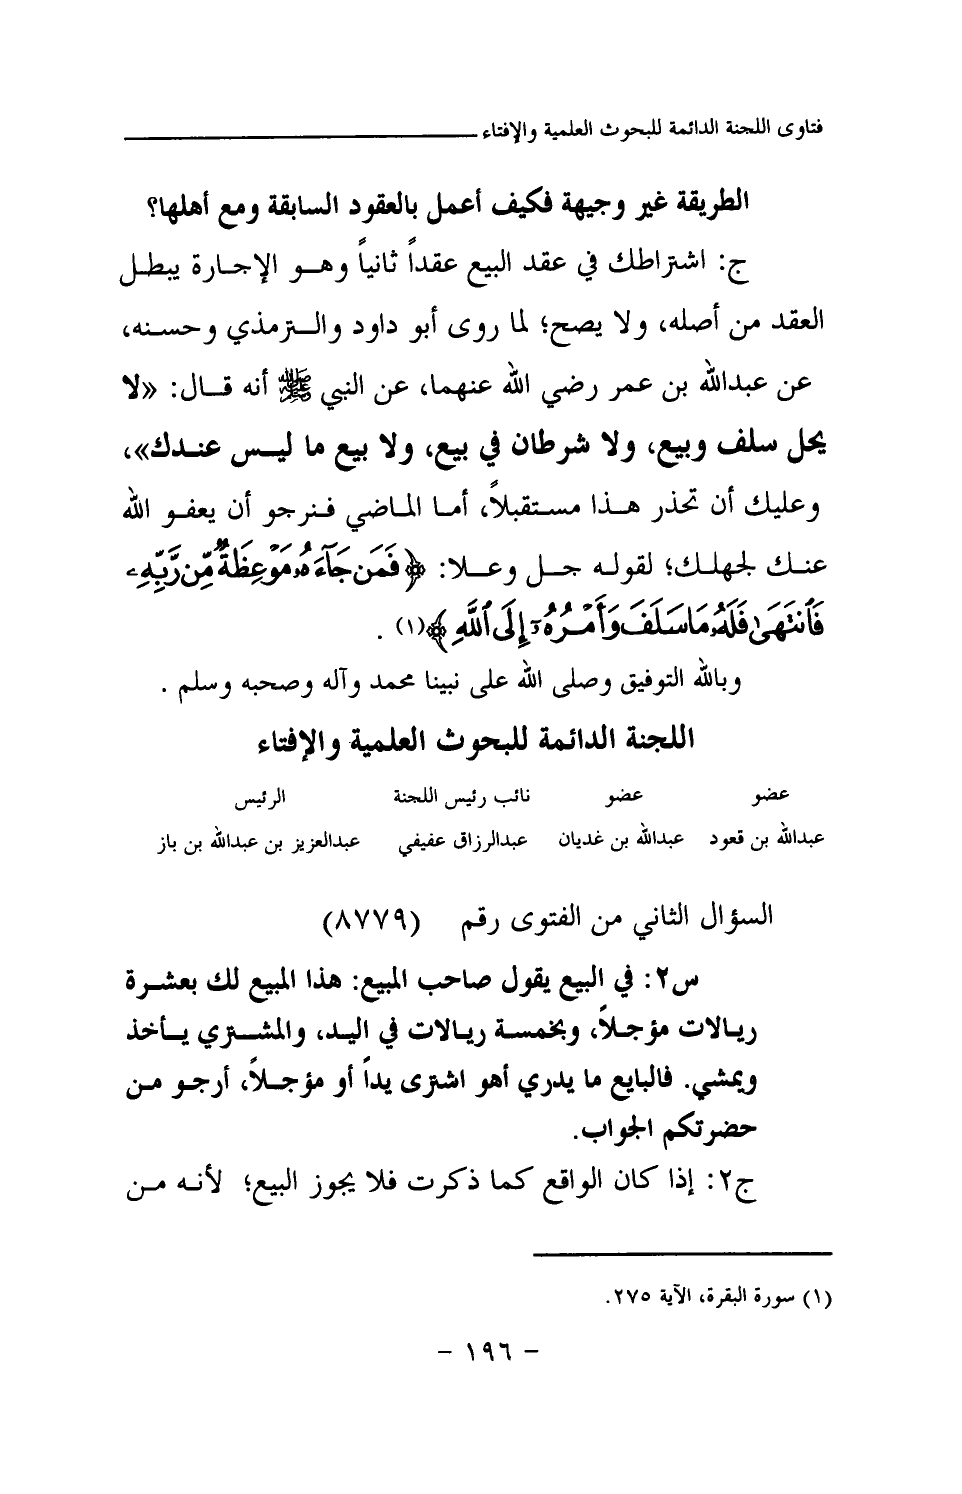 فتاوى اللجنة الدائمة للبحوث العلمية والإفتاء
الطريقة غير وجيهة فكيف أعمل بالعقود السابقة ومع أهلها؟
ج: اشتراطك في عقد البيع عقداً ثانياً وهو الإجارة يبطل
العقد من أصله، ولا يصح؛ لما روى أبو داود والترمذي وحسنه،
عن عبدالله بن عمر رضي الله عنهما، عن النبي ﷺ أنه قال: «لا
يحل سلف وبيع، ولا شرطان في بيع، ولا بيع ما ليس عندك»،
وعليك أن تحذر هذا مستقبلاً، أما الماضي فنرجو أن يعفو الله
عنك لجهلك؛ لقوله جل وعلا: ﴿فَمَن جَآءَهُۥ مَوۡعِظَةٞ مِّن رَّبِّهِۦ
فَٱنتَهَىٰ فَلَهُۥ مَا سَلَفَ وَأَمۡرُهُۥٓ إِلَى ٱللَّهِ﴾(١) .
وبالله التوفيق وصلى الله على نبينا محمد وآله وصحبه وسلم .
اللجنة الدائمة للبحوث العلمية والإفتاء
عضو عضو نائب رئيس اللجنة الرئيس
عبدالله بن قعود عبدالله بن غديان عبدالرزاق عفيفي عبدالعزيز بن عبدالله بن باز
السؤال الثاني من الفتوى رقم (٨٧٧٩)
س٢: في البيع يقول صاحب المبيع: هذا المبيع لك بعشرة
ريالات مؤجلاً، وبخمسة ريالات في اليد، والمشتري يأخذ
ويمشي. فالبايع ما يدري أهو اشترى يداً أو مؤجلاً، أرجو من
حضرتكم الجواب.
ج٢: إذا كان الواقع كما ذكرت فلا يجوز البيع؛ لأنه من
(١) سورة البقرة، الآية ٢٧٥.
- ١٩٦ -